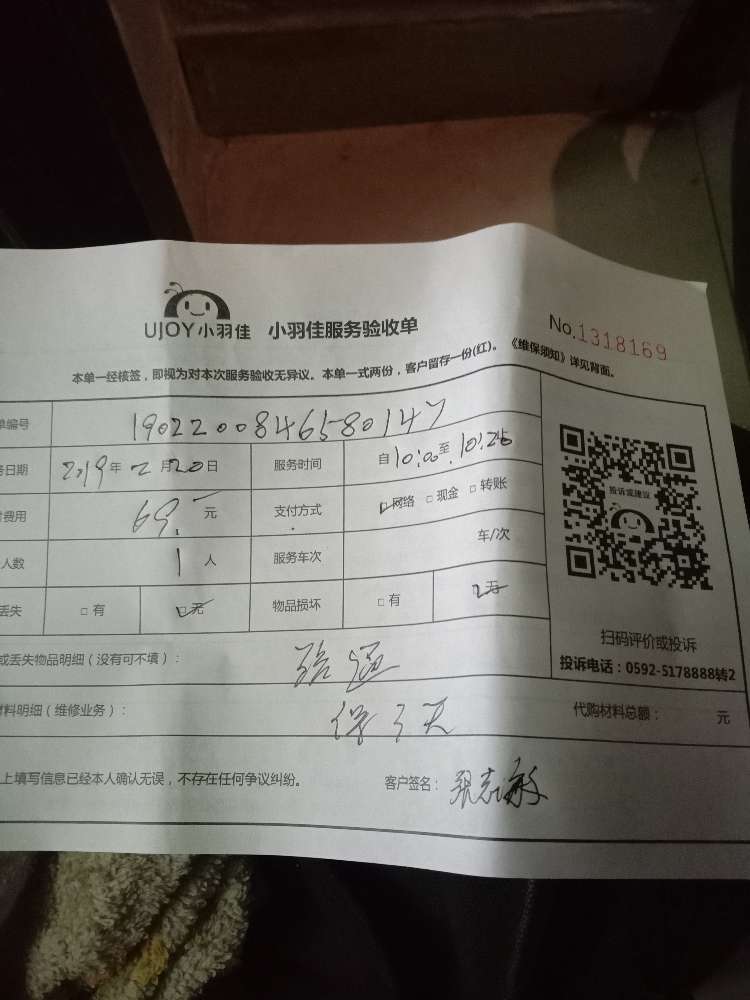 UJOY小羽佳 小羽佳服务验收单
No.1318169
本单一经核签，即视为对本次服务验收无异议。本单一式两份，客户留存一份(红)。《维保须知》详见背面。
单编号 1902200846580147
务日期 2019年2月20日 服务时间 自10:00至10:26
费用 69.元 支付方式 □网络 □现金 □转账
人数 1人 服务车次 车/次
丢失 □有 □无 物品损坏 □有 □无
投诉或建议
扫码评价或投诉
投诉电话：0592-5178888转2
或丢失物品明细（没有可不填）：
材料明细（维修业务）： 代购材料总额： 元
上填写信息已经本人确认无误，不存在任何争议纠纷。 客户签名：张志敏